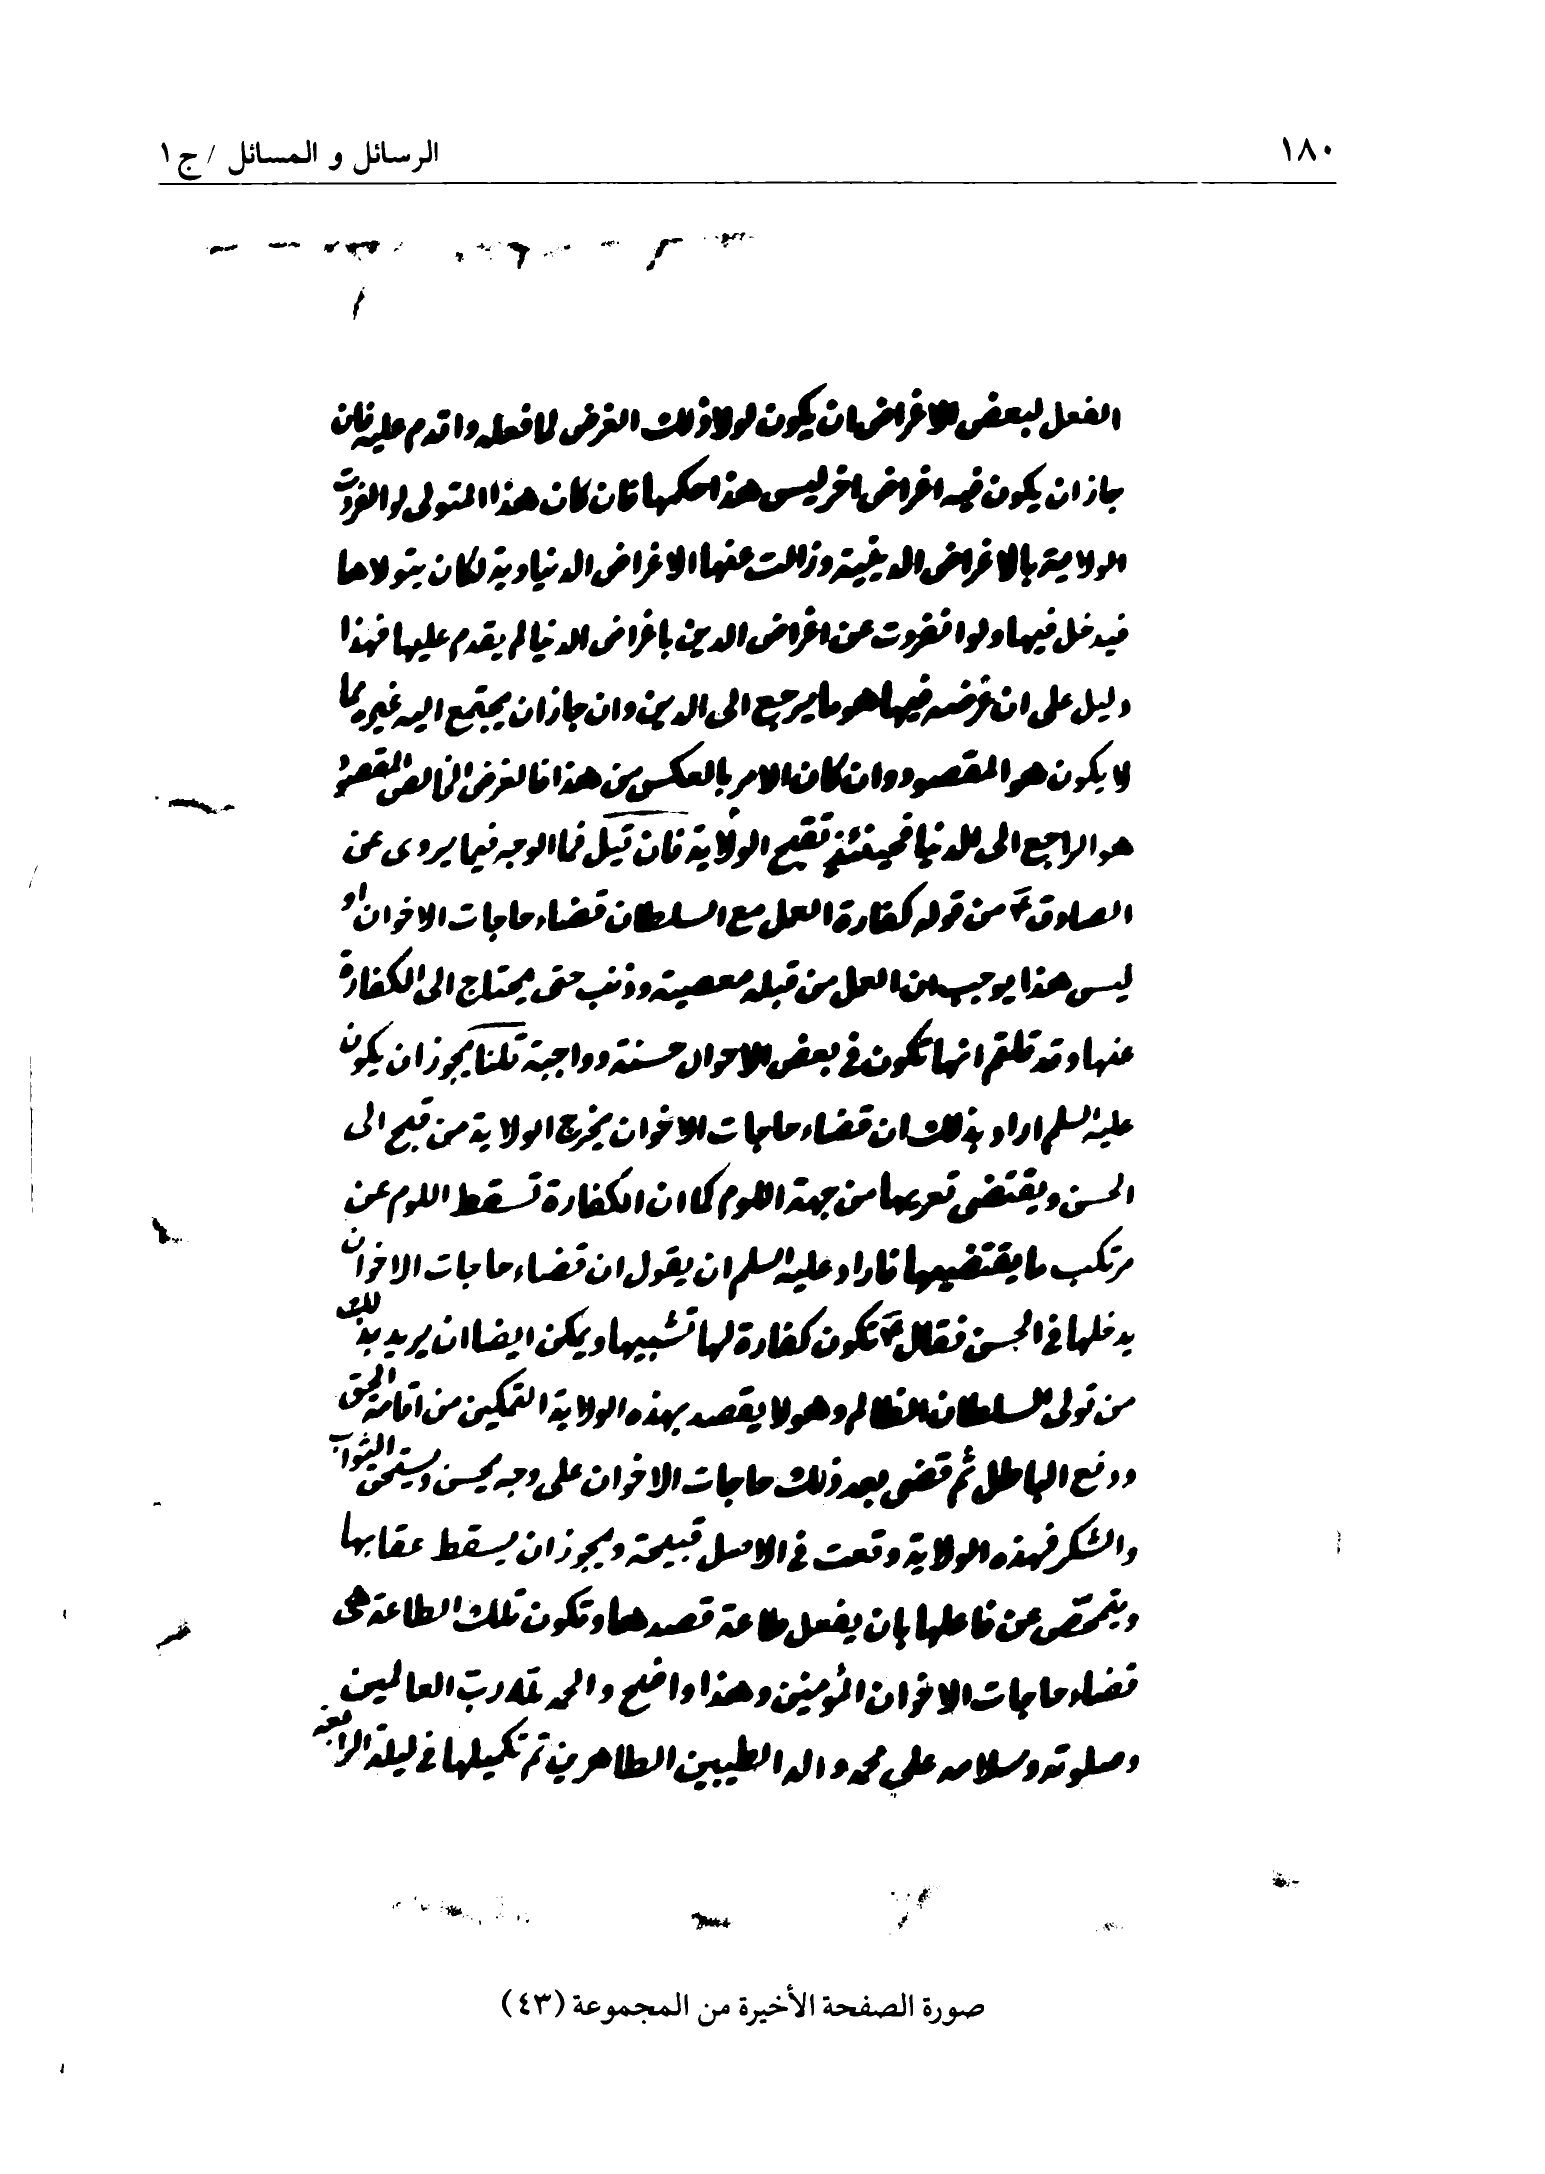 ١٨٠
الرسائل و المسائل / ج ١
الفعل لبعض الاغراض ان يكون لولا ذلك الغرض لما فعله واقدم عليه فان
جاز ان يكون فيه اغراض اخر ليس هذا حكمها فان كان هذا المتولى لو انفردت
الولاية بالاغراض الدينية وزالت عنها الاغراض الدنياوية لكان يتولاها
فيدخل فيها ولو انفردت عن اغراض الدين باغراض الدنيا لم يقدم عليها فهذا
دليل على ان غرضه فيها هو ما يرجع الى الدين وان جاز ان يجتمع اليه غيره مما
لا يكون هو المقصود وان كان الامر بالعكس من هذا فالغرض الخالص المقصود
هو الراجع الى الدنيا فحينئذ تقبح الولاية فان قيل فما الوجه فيما يروى عن
الصادق ع من قوله كفارة العمل مع السلطان قضاء حاجات الاخوان او
ليس هذا يوجب ان العمل من قبله معصية وذنب حتى يحتاج الى الكفارة
عنها وقد قلتم انها تكون في بعض الاحوال حسنة وواجبة قلنا يجوز ان يكون
عليه السلم اراد بذلك ان قضاء حاجات الاخوان يخرج الولاية من قبح الى
الحسن ويقتضى تعريها من جهة اللوم كما ان الكفارة تسقط اللوم عن
مرتكب ما يقتضيها فاراد عليه السلم ان يقول ان قضاء حاجات الاخوان
يدخلها في الحسن فقال ع تكون كفارة لها تشبيها ويمكن ايضا ان يريد بذلك
من تولى للسلطان الظالم وهو لا يقصد بهذه الولاية التمكين من اقامة الحق
ودفع الباطل ثم قضى بعد ذلك حاجات الاخوان على وجه يحسن ويستحق الثواب
والشكر فهذه الولاية وقعت في الاصل قبيحة ويجوز ان يسقط عقابها
ويتمحّص عن فاعلها بان يفعل طاعة قصدها وتكون تلك الطاعة هى
قضاء حاجات الاخوان المؤمنين وهذا واضح والحمد لله ربّ العالمين
وصلوته وسلامه على محمد واله الطيبين الطاهرين تم تكميلها في ليلة الرابعة
صورة الصفحة الأخيرة من المجموعة (٤٣)